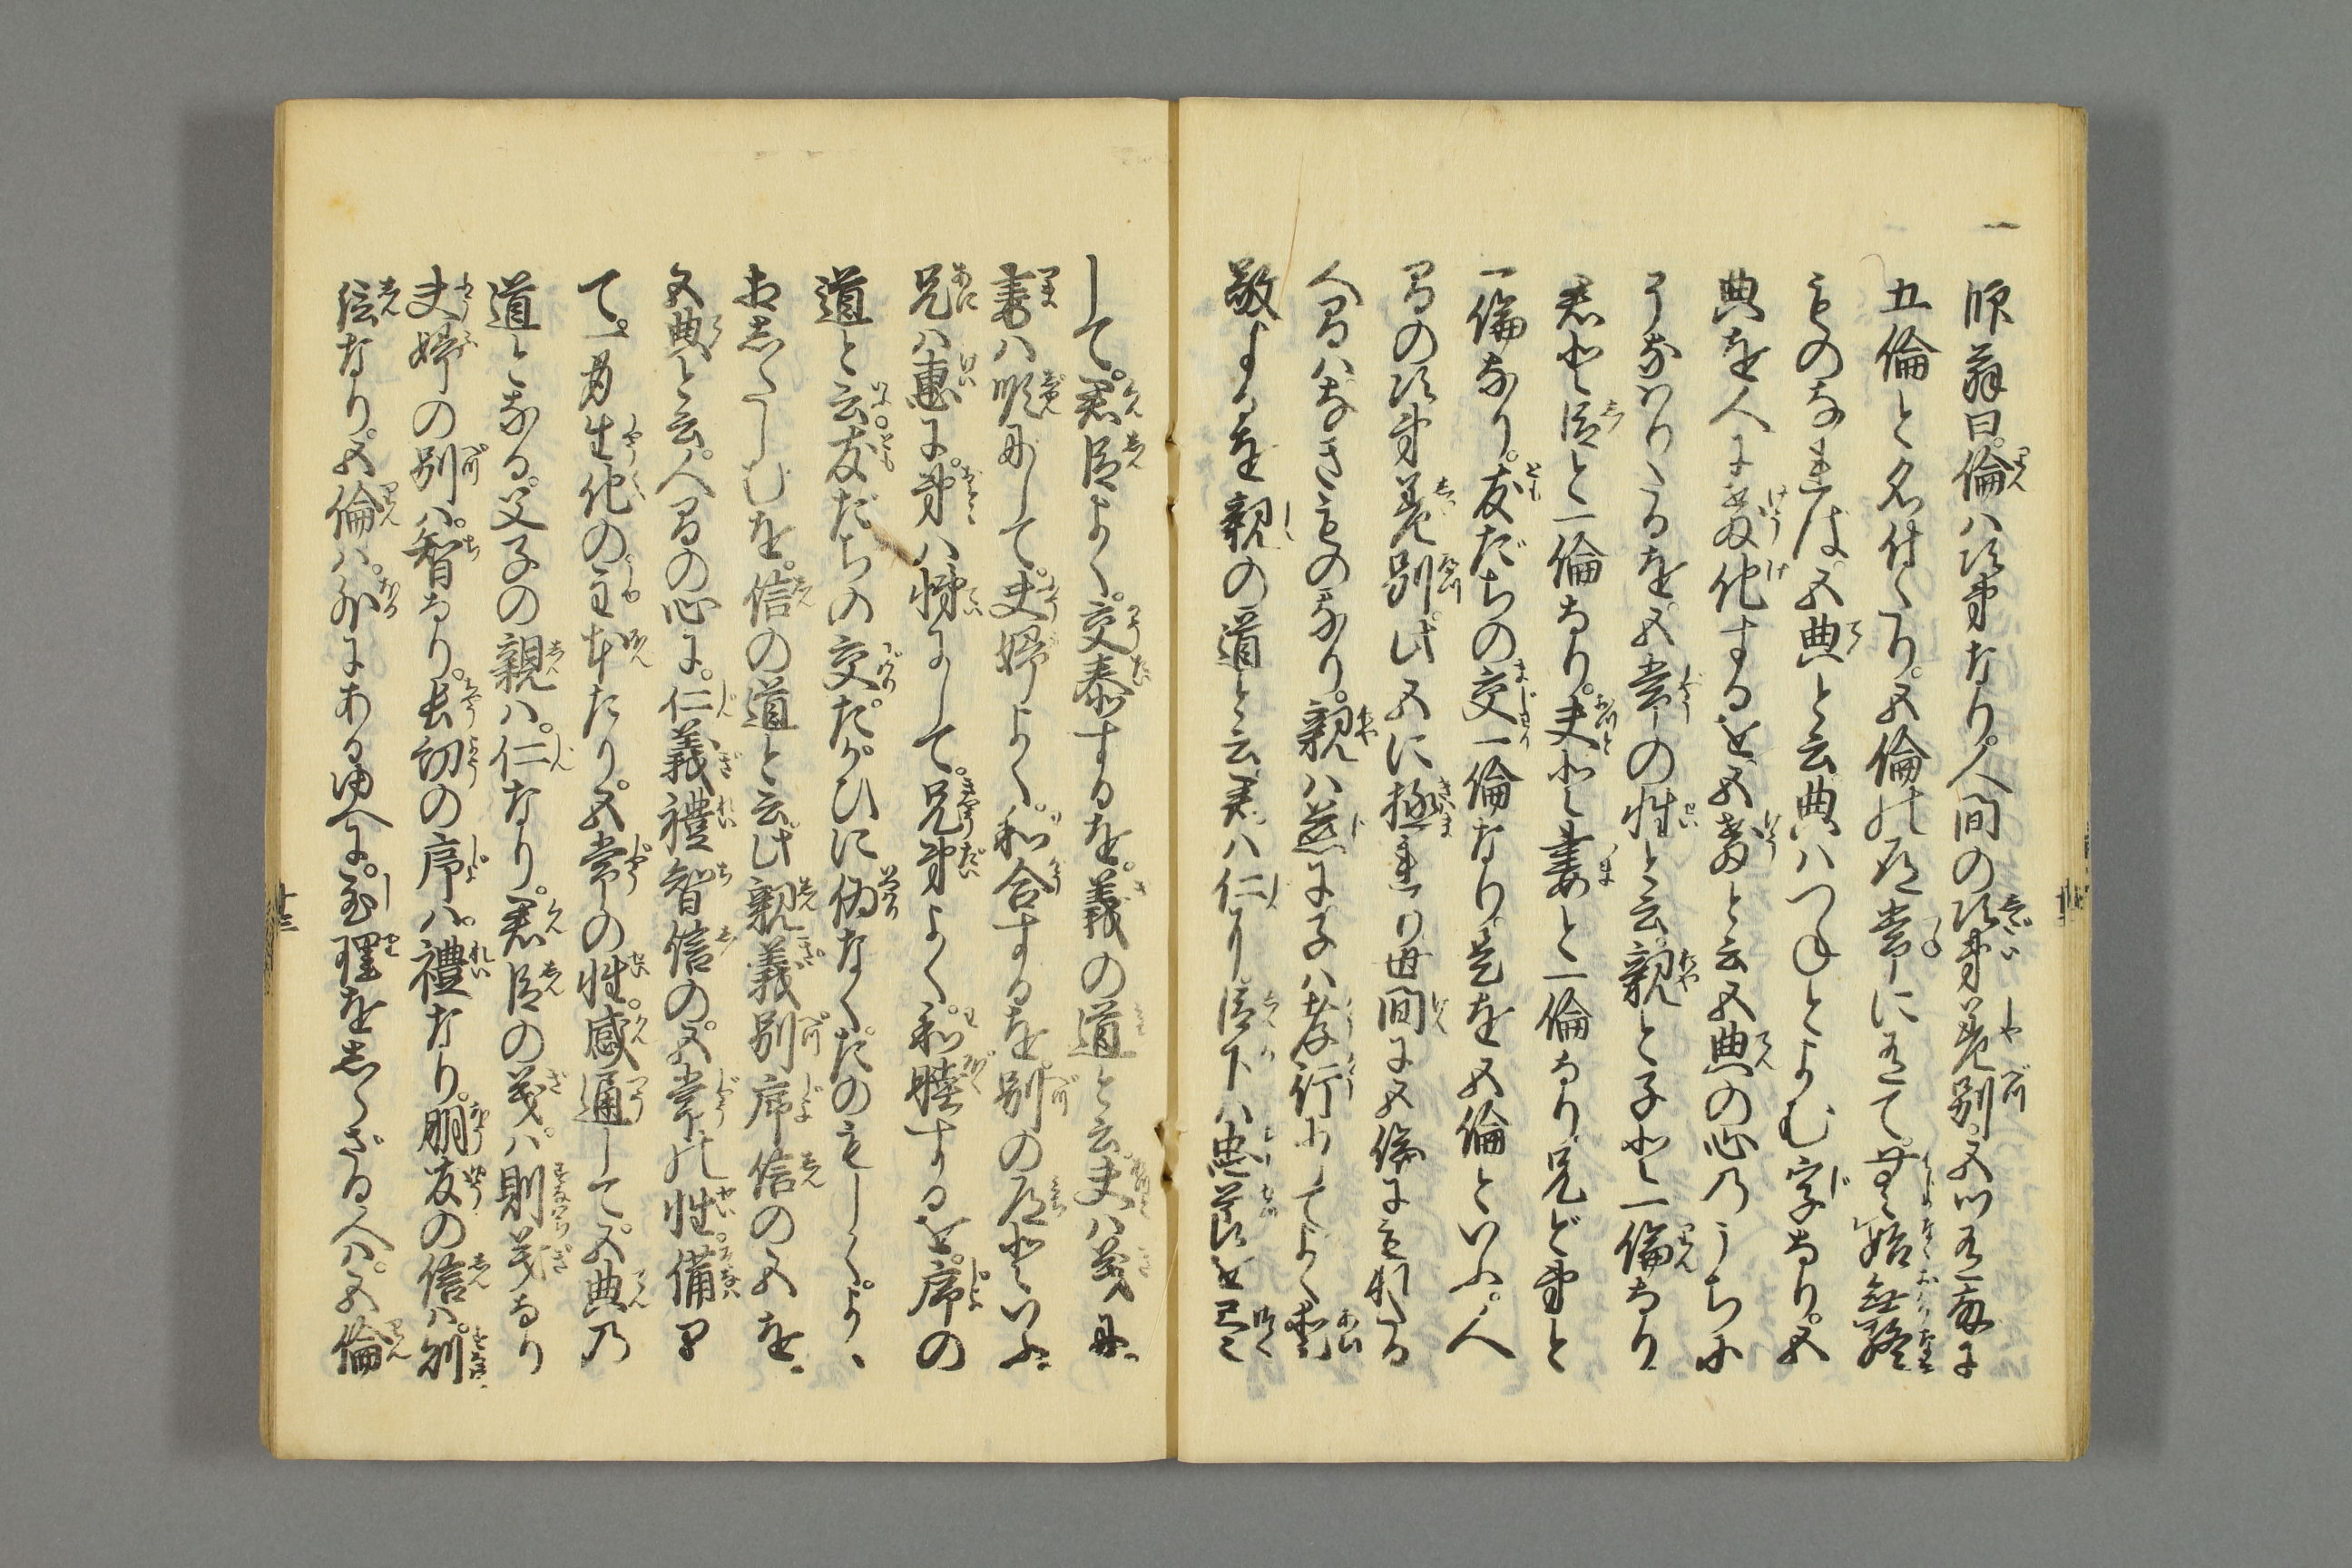 一
師翁曰。倫ハ次第なり。人間の次第差別。五ツ有故に
五倫と名付くり。五倫の道常に有て。無始無終
ものなれば。五典と云典ハつねとよむ字なり。五
典を人に教化するを五教と云五典の心のうちに
そなハりたるを。五常の性と云。親と子と一倫なり
君と臣と一倫なり。夫と妻と一倫なり兄と弟と
一倫なり。友だちの交一倫なり是を五倫といふ。人
間の次第差別。此五に極まり世間に五倫にもれたる
人間ハなきものなり。親ハ慈に子ハ孝行にしてよく愛
敬するを親の道と云君ハ仁に臣下ハ忠節を尽
して。君臣よく。交泰するを。義の道と云夫ハ義に
妻ハ順にして。夫婦よく。和合するを。別の道といふ
兄ハ惠に。弟ハ悌にして。兄弟よく。和睦するを。序の
道と云。友だちの交たがひに偽なくたのもしく。よく
おしたしむを。信の道と云。此親義別序信の五を。
五典と云。人間の心に。仁義禮智信の五常の性。備り
て。一身生化の主本たり。五常の性。感通して。五典の
道となる。父子の親ハ。仁なり。君臣の義ハ。則義なり
夫婦の別ハ。智なり。長幼の序ハ。禮なり。朋友の信ハ。則
信なり。五倫ハ。外にあるゆへに。至理をしらざる人ハ。五倫
十三